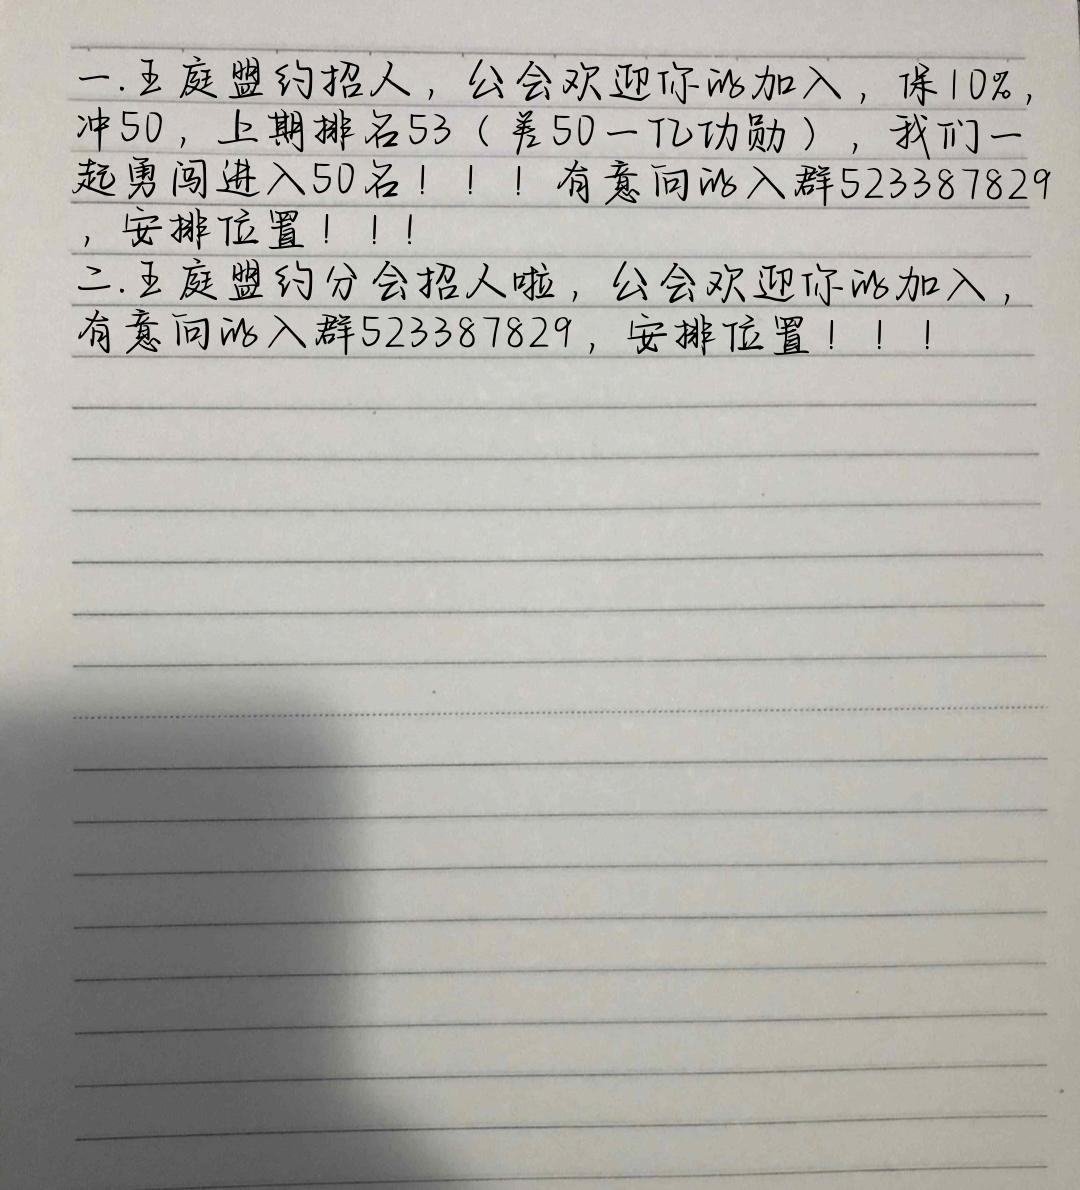 一.王庭盟约招人，公会欢迎你的加入，保10%，
冲50，上期排名53（差50一亿功勋），我们一
起勇闯进入50名！！！有意向的入群523387829
，安排位置！！！
二.王庭盟约分会招人啦，公会欢迎你的加入，
有意向的入群523387829，安排位置！！！